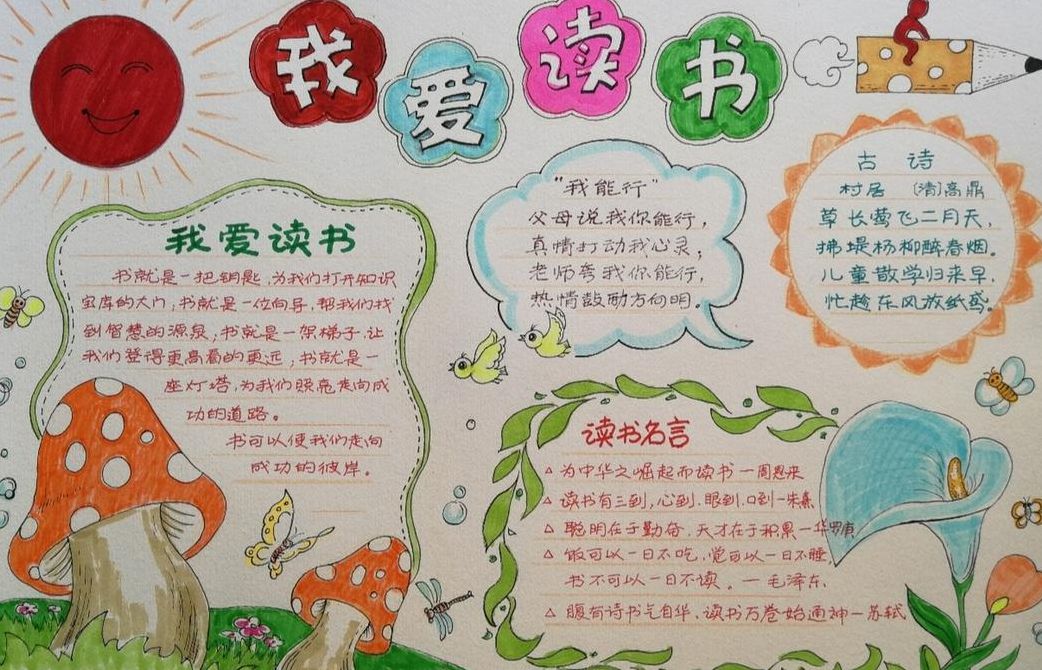 我爱读书
我爱读书
书就是一把钥匙,为我们打开知识
宝库的大门,书就是一位向导,帮我们找
到智慧的源泉,书就是一架梯子,让
我们登得更高看的更远,书就是一
座灯塔,为我们照亮走向成
功的道路。
书可以使我们走向
成功的彼岸。
“我能行”
父母说我你能行,
真情打动我心灵,
老师夸我你能行,
热情鼓励方向明。
古诗
村居 〔清〕高鼎
草长莺飞二月天,
拂堤杨柳醉春烟。
儿童散学归来早,
忙趁东风放纸鸢。
读书名言
△ 为中华之崛起而读书—周恩来
△ 读书有三到,心到.眼到.口到—朱熹
△ 聪明在于勤奋,天才在于积累—华罗庚
△ 饭可以一日不吃,觉可以一日不睡,
书不可以一日不读。—毛泽东
△ 腹有诗书气自华,读书万卷始通神—苏轼